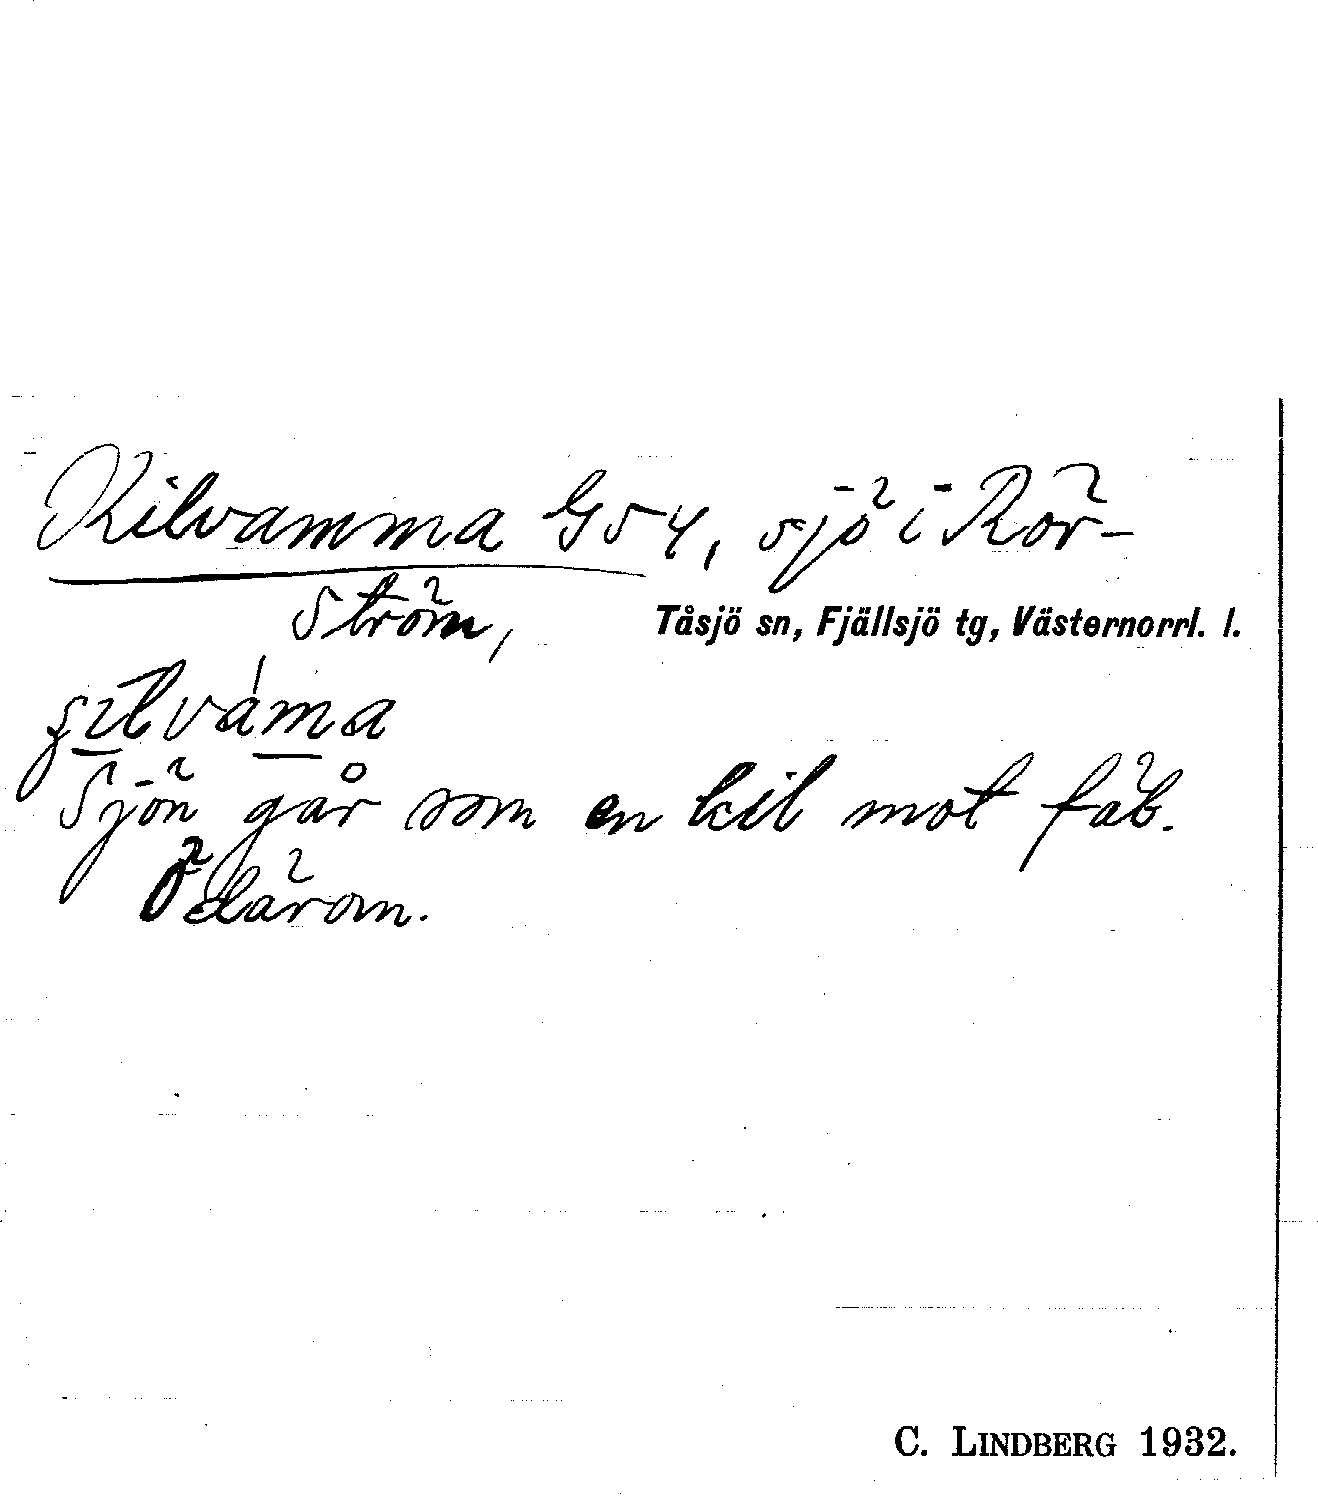 Kilvamma G54, sjö i Rör-
ström,
Tåsjö sn, Fjällsjö tg, Västernorrl. l.
Sjön går som en kil mot fäb.
därom.
C. LINDBERG 1932.